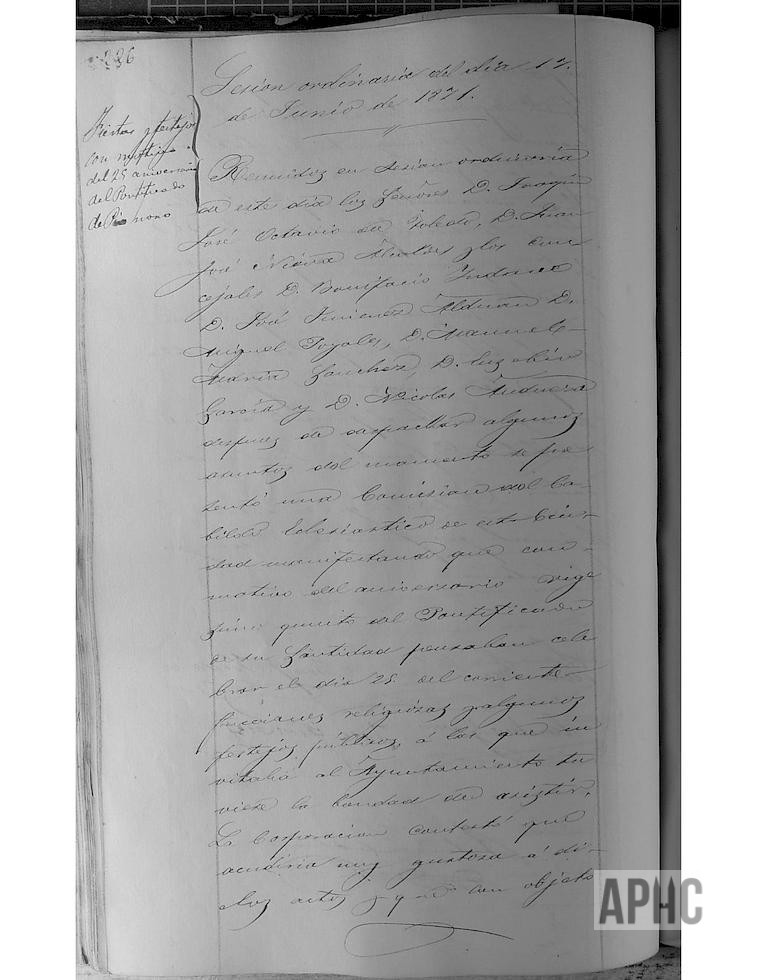 226
Sesion ordinaria del dia 17.
de Junio de 1871.
Fiestas y festejos
con motivo
del 25 aniversario
del Pontificado
de Pio nono
Reunidos en sesion ordinaria
de este dia los Señores D. Joaquin
José Octavio de Toledo, D. Juan
José Alcaldes y los con-
cejales D. Bonifacio
D. José Jimenez Alduan D.
Miguel D. Manuel
Maria Sanchez, D. Eusebio
Garcia y D. Nicolas
despues de despachar algunos
asuntos del momento se pre
sentó una Comision del Ca-
bildo Eclesiastico de esta Ciu-
dad manifestando que con
motivo del aniversario vige
simo quinto del Pontificado
de su Santidad pensaban cele
brar el dia 25. del corriente
funciones religiosas y algunos
festejos públicos, á los que in
vitaba al Ayuntamiento tu
viese la bondad de asistir.
La Corporacion contestó que
acudiria muy gustosa á di-
chos actos y que con objeto
APHC